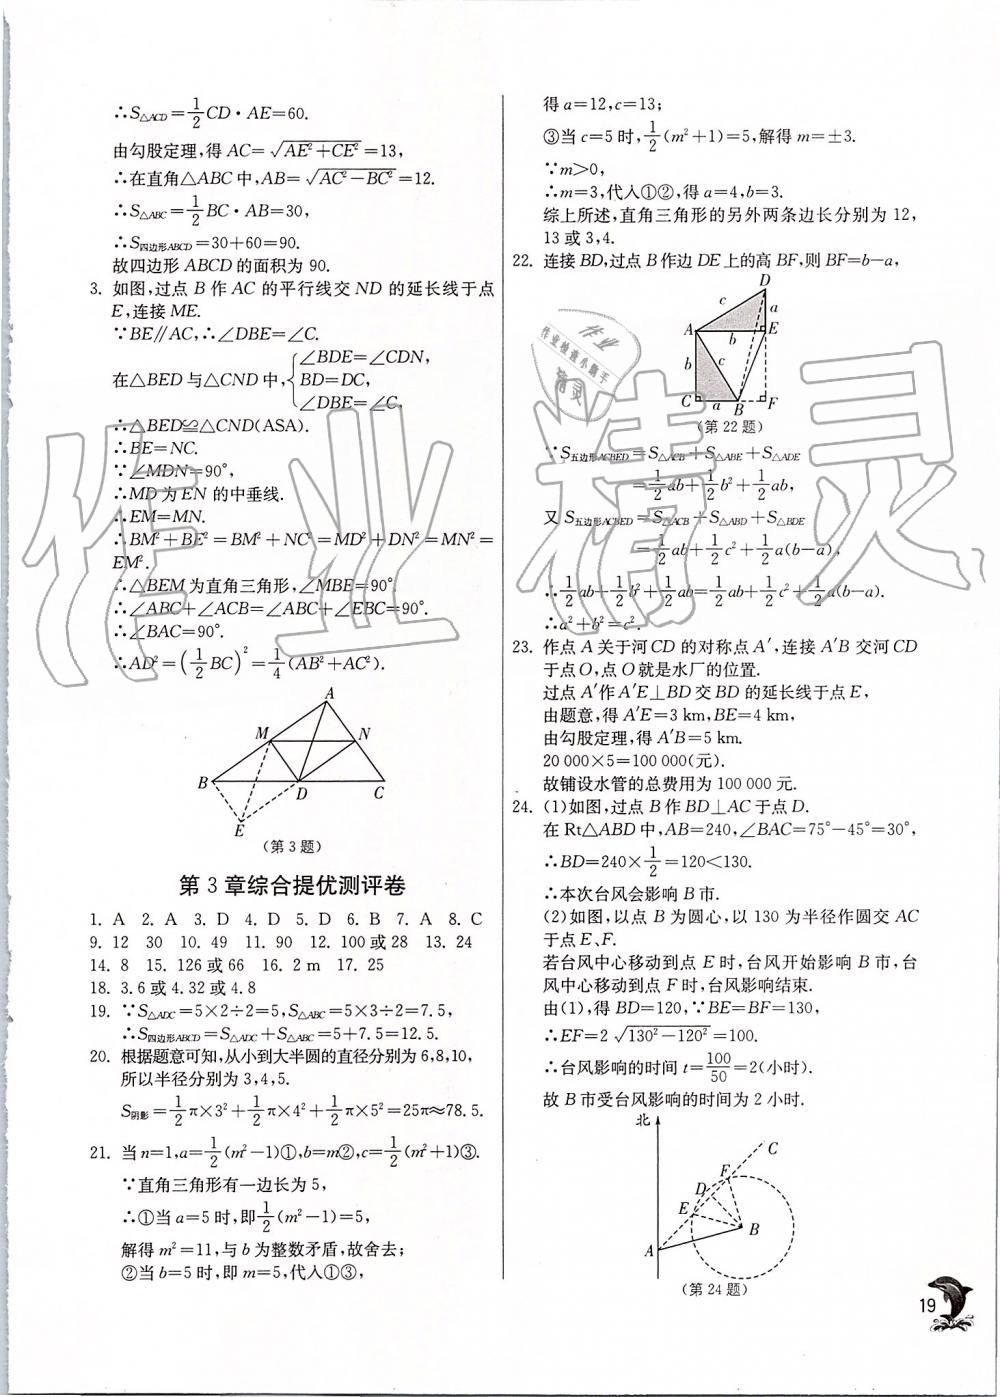 ∴S△ACD=1/2CD·AE=60.
由勾股定理,得 AC=√(AE²+CE²)=13,
∴在直角△ABC 中,AB=√(AC²-BC²)=12.
∴S△ABC=1/2BC·AB=30,
∴S四边形ABCD=30+60=90.
故四边形 ABCD 的面积为 90.
3. 如图,过点 B 作 AC 的平行线交 ND 的延长线于点
E,连接 ME.
∵BE∥AC,∴∠DBE=∠C.
在△BED 与△CND 中,{∠BDE=∠CDN,
BD=DC,
∠DBE=∠C,
∴△BED≌△CND(ASA).
∴BE=NC.
∵∠MDN=90°,
∴MD 为 EN 的中垂线.
∴EM=MN.
∴BM²+BE²=BM²+NC²=MD²+DN²=MN²=
EM².
∴△BEM 为直角三角形,∠MBE=90°.
∴∠ABC+∠ACB=∠ABC+∠EBC=90°.
∴∠BAC=90°.
∴AD²=(1/2BC)²=1/4(AB²+AC²).
A
M
N
B
D
C
E
(第 3 题)
第 3 章综合提优测评卷
1. A 2. A 3. D 4. D 5. D 6. B 7. A 8. C
9. 12 30 10. 49 11. 90 12. 100 或 28 13. 24
14. 8 15. 126 或 66 16. 2 m 17. 25
18. 3.6 或 4.32 或 4.8
19. ∵S△ADC=5×2÷2=5,S△ABC=5×3÷2=7.5,
∴S四边形ABCD=S△ADC+S△ABC=5+7.5=12.5.
20. 根据题意可知,从小到大半圆的直径分别为 6,8,10,
所以半径分别为 3,4,5.
S阴影=1/2π×3²+1/2π×4²+1/2π×5²=25π≈78.5.
21. 当 n=1,a=1/2(m²-1)①,b=m②,c=1/2(m²+1)③.
∵直角三角形有一边长为 5,
∴①当 a=5 时,即1/2(m²-1)=5,
解得 m²=11,与 b 为整数矛盾,故舍去;
②当 b=5 时,即 m=5,代入①③,
得 a=12,c=13;
③当 c=5 时,1/2(m²+1)=5,解得 m=±3.
∵m>0,
∴m=3,代入①②,得 a=4,b=3.
综上所述,直角三角形的另外两条边长分别为 12,
13 或 3,4.
22. 连接 BD,过点 B 作边 DE 上的高 BF,则 BF=b-a,
D
c
a
A
b
E
b
c
C
a
B
F
(第 22 题)
∵S五边形ACBED=S△ACB+S△ABE+S△ADE
=1/2ab+1/2b²+1/2ab,
又 S五边形ACBED=S△ACB+S△ABD+S△BDE
=1/2ab+1/2c²+1/2a(b-a),
∴1/2ab+1/2b²+1/2ab=1/2ab+1/2c²+1/2a(b-a).
∴a²+b²=c².
23. 作点 A 关于河 CD 的对称点 A′,连接 A′B 交河 CD
于点 O,点 O 就是水厂的位置.
过点 A′作 A′E⊥BD 交 BD 的延长线于点 E,
由题意,得 A′E=3 km,BE=4 km,
由勾股定理,得 A′B=5 km.
20 000×5=100 000(元).
故铺设水管的总费用为 100 000 元.
24. (1)如图,过点 B 作 BD⊥AC 于点 D.
在 Rt△ABD 中,AB=240,∠BAC=75°-45°=30°,
∴BD=240×1/2=120<130.
∴本次台风会影响 B 市.
(2)如图,以点 B 为圆心,以 130 为半径作圆交 AC
于点 E、F.
若台风中心移动到点 E 时,台风开始影响 B 市,台
风中心移动到点 F 时,台风影响结束.
由(1),得 BD=120,∵BE=BF=130,
∴EF=2√(130²-120²)=100.
∴台风影响的时间 t=100/50=2(小时).
故 B 市受台风影响的时间为 2 小时.
北
C
F
D
E
B
A
(第 24 题)
19
作业精灵
作业
作业检查小助手
精灵